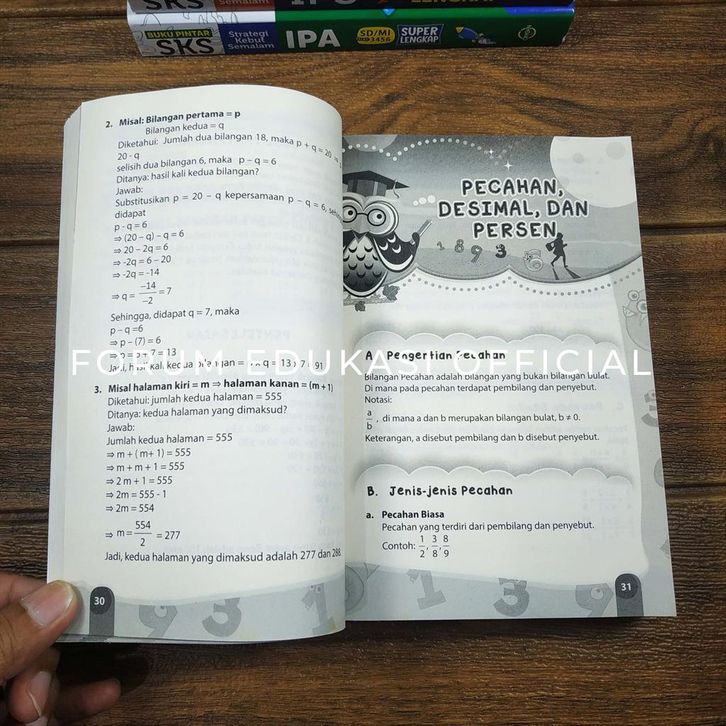 BUKU PINTAR
SKS
Strategi
Kebut
Semalam
IPA
SD/MI
3456
SUPER
LENGKAP
2. Misal: Bilangan pertama = p
Bilangan kedua = q
Diketahui: Jumlah dua bilangan 18, maka p + q = 20
20 - q
selisih dua bilangan 6, maka p – q = 6
Ditanya: hasil kali kedua bilangan?
Jawab:
Substitusikan p = 20 – q kepersamaan p – q = 6,
didapat
p - q = 6
⇒ (20 – q) – q = 6
⇒ 20 – 2q = 6
⇒ -2q = 6 – 20
⇒ -2q = -14
⇒ q = –14/–2 = 7
Sehingga, didapat q = 7, maka
p – q =6
⇒ p – (7) = 6
⇒ p = 7 = 13
Jadi, hasil kali kedua bilangan = p x q = 13 x 7 = 91
3. Misal halaman kiri = m ⇒ halaman kanan = (m + 1)
Diketahui: jumlah kedua halaman = 555
Ditanya: kedua halaman yang dimaksud?
Jawab:
Jumlah kedua halaman = 555
⇒ m + ( m+ 1) = 555
⇒ m + m + 1 = 555
⇒ 2 m + 1 = 555
⇒ 2m = 555 - 1
⇒ 2m = 554
⇒ m = 554/2 = 277
Jadi, kedua halaman yang dimaksud adalah 277 dan 288.
30
PECAHAN,
DESIMAL, DAN
PERSEN
1 8 9 3
A. Pengertian Pecahan
Bilangan Pecahan adalah bilangan yang bukan bilangan bulat.
Di mana pada pecahan terdapat pembilang dan penyebut.
Notasi:
a/b , di mana a dan b merupakan bilangan bulat, b ≠ 0.
Keterangan, a disebut pembilang dan b disebut penyebut.
B. Jenis-jenis Pecahan
a. Pecahan Biasa
Pecahan yang terdiri dari pembilang dan penyebut.
Contoh: 1/2, 3/8, 8/9
31
FORUM EDUKASI OFFICIAL